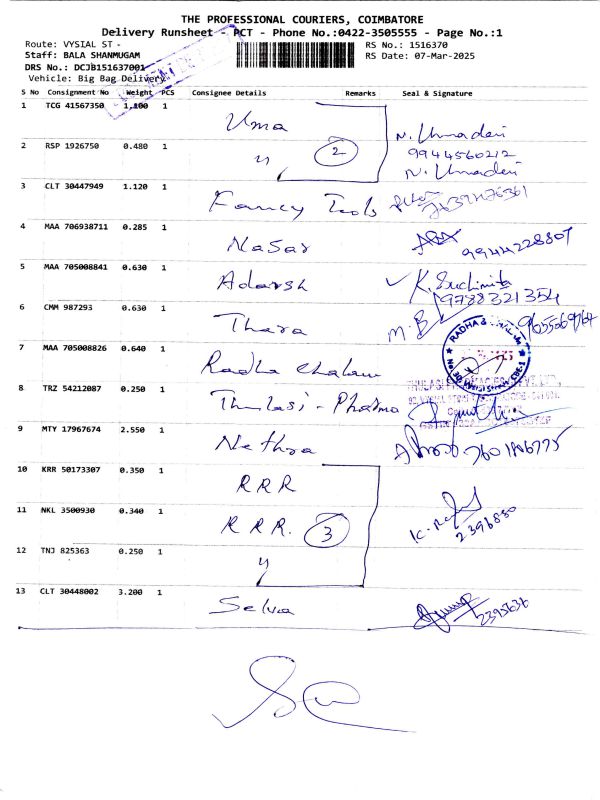 THE PROFESSIONAL COURIERS, COIMBATORE
Delivery Runsheet - PCT - Phone No.:0422-3505555 - Page No.:1
Route: VYSIAL ST -
RS No.: 1516370
Staff: BALA SHANMUGAM
RS Date: 07-Mar-2025
DRS No.: DCJB151637001
Vehicle: Big Bag Delivery
S No Consignment No Weight PCS Consignee Details Remarks Seal & Signature
1 TCG 41567350 1.100 1 Uma N. Umadevi
9944560212
2 RSP 1926750 0.480 1 〃 2 N. Umadevi
3 CLT 30447949 1.120 1 Fancy Tools
4 MAA 706938711 0.285 1 Nasar 9944228807
5 MAA 705008841 0.630 1 Adarsh K. Suchimita
9788321354
6 CMM 987293 0.630 1 Thara M.B 9655669764
7 MAA 705008826 0.640 1 Radha Chalam RADHA
8 TRZ 54212087 0.250 1 Thulasi - Pharma
9 MTY 17967674 2.550 1 Nethra
10 KRR 50173307 0.350 1 RRR
11 NKL 3500930 0.340 1 RRR. 3 2396830
12 TNJ 825363 0.250 1 〃
13 CLT 30448002 3.200 1 Selva 2395636